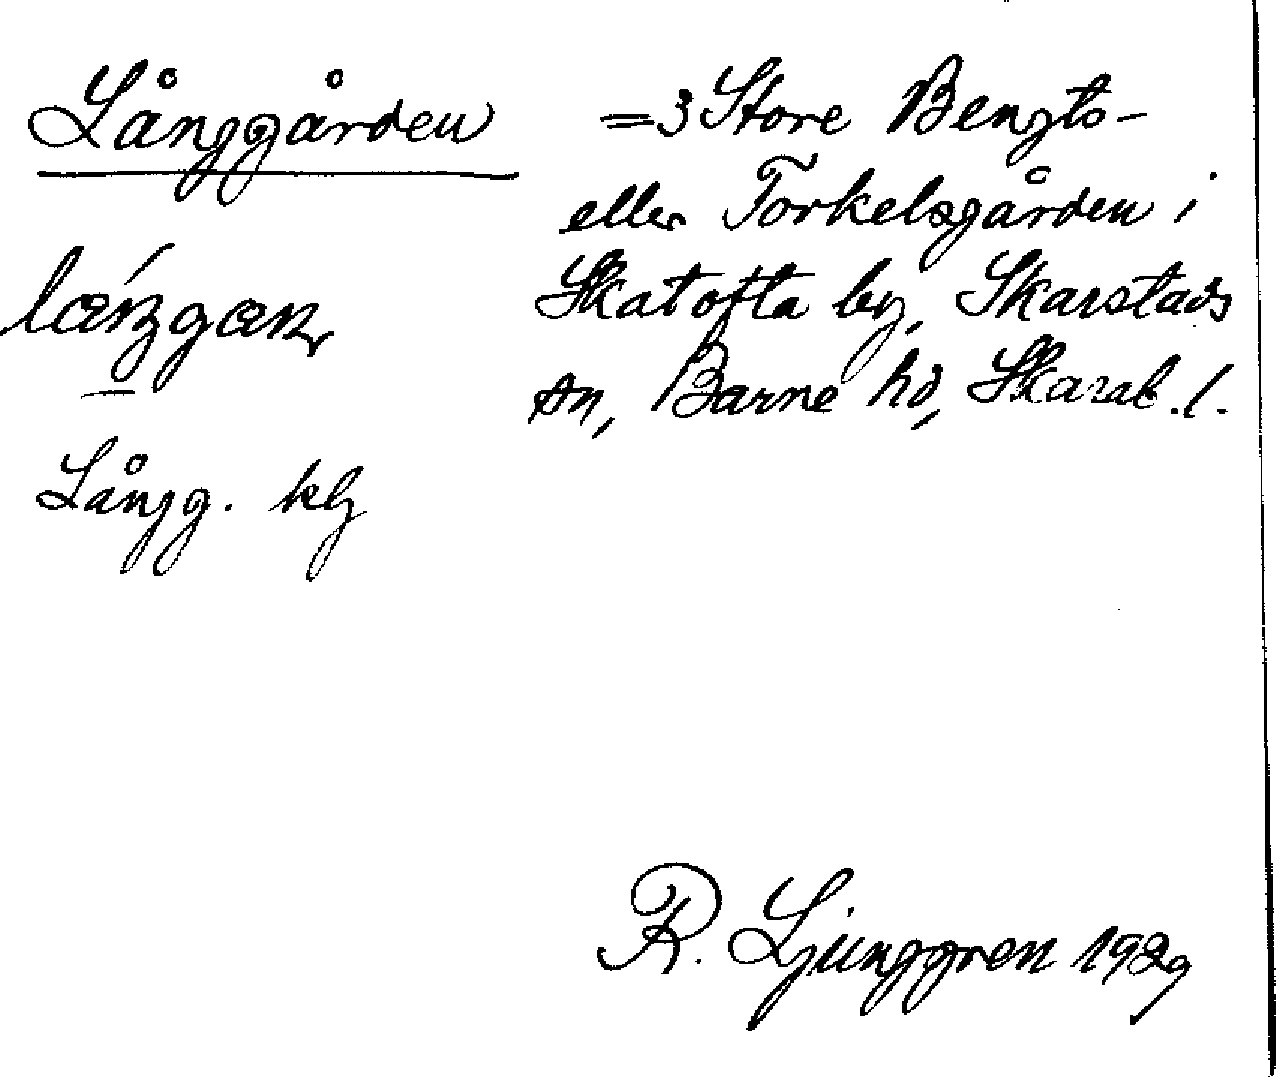 Långgården
Långg. klg
=3 Store Bengts-
eller Torkelsgården i
Skatofta by, Skarstads
sn, Barne hd, Skarab. l.
R. Ljunggren 1929